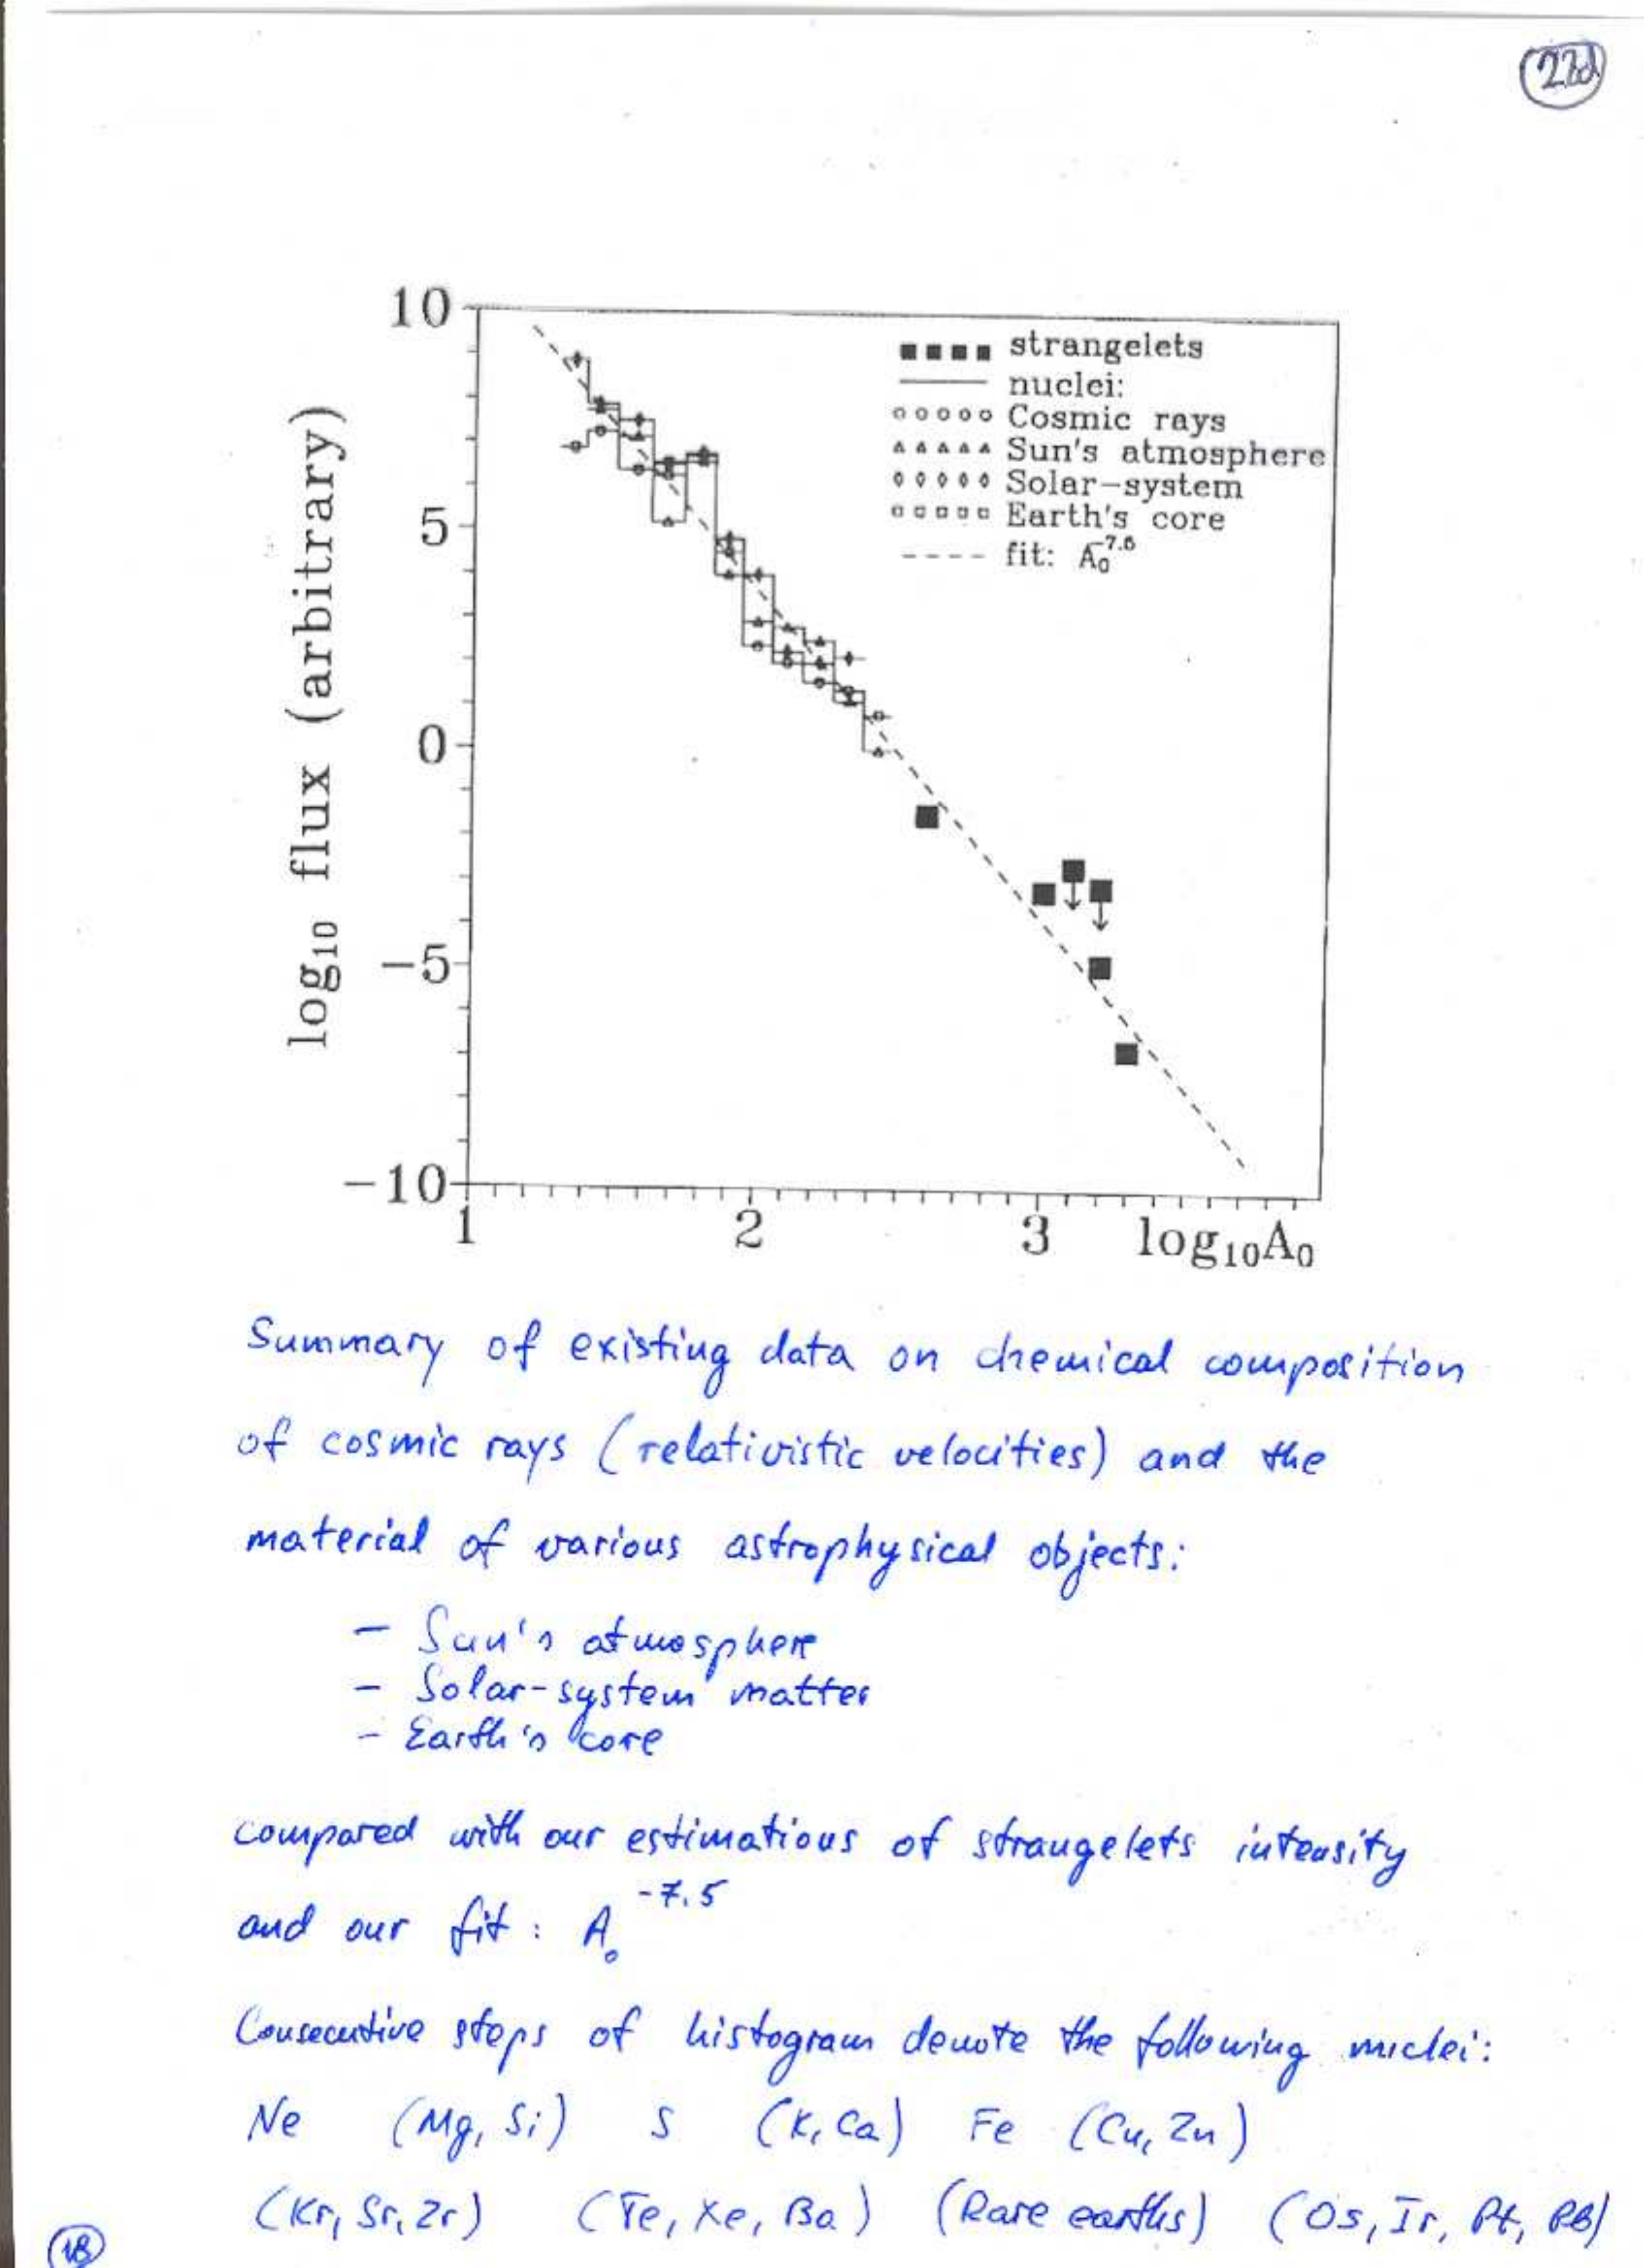 22d
10
5
0
−5
−10
log₁₀ flux (arbitrary)
strangelets
nuclei:
Cosmic rays
Sun's atmosphere
Solar-system
Earth's core
fit: A₀^-7.5
1 2 3 log₁₀A₀
Summary of existing data on chemical composition
of cosmic rays (relativistic velocities) and the
material of various astrophysical objects:
- Sun's atmosphere
- Solar-system matter
- Earth's core
compared with our estimations of strangelets intensity
and our fit: A₀^-7.5
Consecutive steps of histogram denote the following nuclei:
Ne (Mg, Si) S (K, Ca) Fe (Cu, Zn)
(Kr, Sr, Zr) (Te, Xe, Ba) (Rare earths) (Os, Ir, Pt, PB)
18